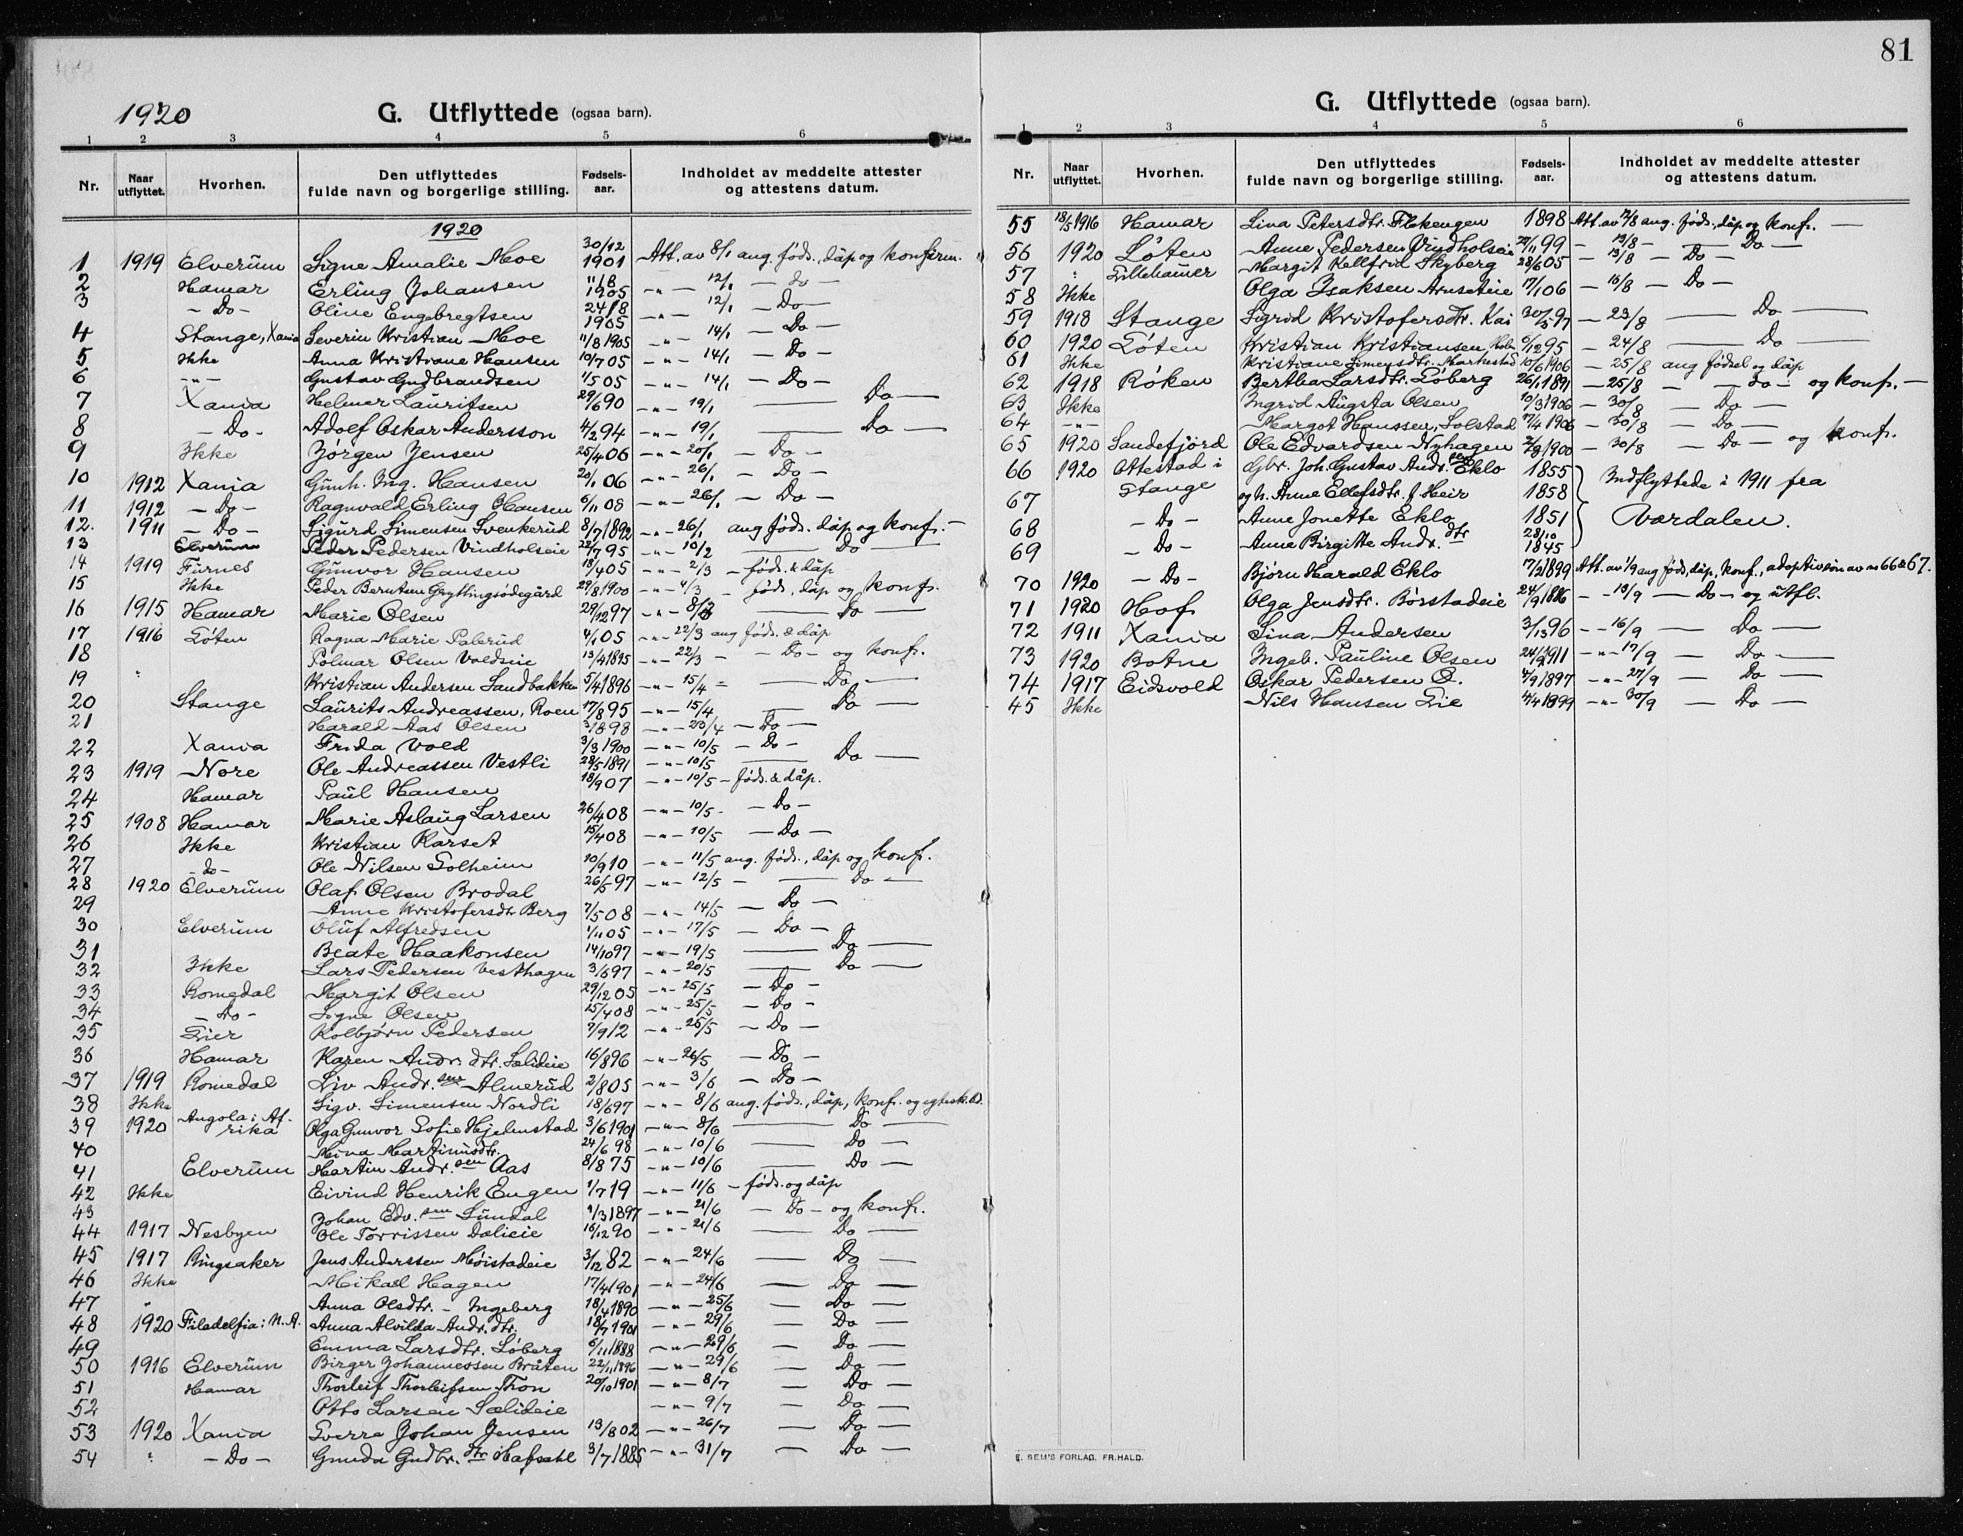 1920 G. Utflyttede (ogsaa barn).
1 2 3 4 5 6
Nr. Naar utflyttet. Hvorhen. Den utflyttedes fulde navn og borgerlige stilling. Fødsels-aar. Indholdet av meddelte attester og attestens datum.
1920
1 1919 Elverum Signe Amalie Moe 30/12 1901 Att. av 8/1 ang. føds., dåp og konfirm.
2 Hamar Erling Johansen 11/8 1905 — " — 12/1 — do —
3 — Do — Oline Engebregtsen 24/8 1905 — " — 12/1 — Do —
4 Stange, Xania Severin Kristian Moe 11/8 1905 — " — 14/1 — Do —
5 Ikke Anna Kristiane Hansen 10/7 05 — " — 14/1 — Do —
6 — " — Gustav Gudbrandsen 1/5 05 — " — 14/1 — Do —
7 Xania Helmer Lauritsen 29/6 90 — " — 19/1 — Do —
8 — Do — Adolf Oskar Andersson 4/2 94 — " — 19/1 — Do —
9 Ikke Jørgen Jensen 25/4 06 — " — 20/1 — Do —
10 1912 Xania Gunh. Ing. Hansen 20/1 06 — " — 26/1 — Do —
11 1912 — Do — Ragnvald Erling Hansen 6/11 08 — " — 26/1 — Do —
12. 1911 — Do — Sigurd Simensen Svenkerud 8/7 1892 — " — 26/1 ang føds. dåp og konf. —
13 Elverum Peder Pedersen Vindholseie 22/7 95 — " — 10/2 — Do —
14 1919 Furnes Gunvor Hansen 18/4 05 — " — 2/3 — føds. & dåp
15 Ikke Peder Berntsen Gryttingsødegård 29/8 1900 — " — 4/3 — føds., dåp og konf.
16 1915 Hamar Marie Olsen 29/12 97 — " — 8/3 — Do —
17 1916 Løten Ragna Marie Palerud 4/1 05 — " — 22/3 ang føds. & dåp
18 Polmar Olsen Voldseie 13/4 1895 — " — 22/3 — Do — og konf.
19 Kristian Andersen Sandbakken 5/4 1896 — " — 15/4 — Do —
20 Stange Laurits Andreassen, Roen 17/8 95 — " — 15/4 — Do —
21 Harald Aas Olsen 3/1 898 — " — 23/4 — Do —
22 Xania Frida Vold 3/3 1900 — " — 10/5 — Do —
23 1919 Nore Ole Andreassen Vestli 28/5 1891 — " — 10/5 — Do —
24 Hamar Paul Hansen 18/9 07 — " — 10/5 — føds. & dåp.
25 1908 Hamar Marie Aslaug Larsen 26/4 08 — " — 10/5 — Do —
26 Ikke Kristian Karset 15/4 08 — " — 10/5 — Do —
27 — do — Ole Nilsen Solheim 10/9 10 — " — 11/5 ang. føds., dåp og konf.
28 1920 Elverum Olaf Olsen Brodal 26/5 97 — " — 12/5 — Do —
29 Anne Kristofersdtr Berg 7/5 08 — " — 14/5 — Do —
30 Elverum Oluf Alfredsen 1/11 05 — " — 17/5 — Do —
31 Beate Haakonsen 14/10 97 — " — 19/5 — Do —
32 Ikke Lars Pedersen Vesthagen 3/6 97 — " — 20/5 — Do —
33 Romedal Margit Olsen 29/12 05 — " — 25/5 — Do —
34 — Do — Signe Olsen 25/4 08 — " — 25/5 — Do —
35 Lier Kolbjørn Pedersen 7/9 12 — " — 25/5 — Do —
36 Hamar Karen Andr. dtr. Sælideie 16/8 96 — " — 26/5 — Do —
37 1919 Romedal Liv Andr. sen Almerud 2/8 05 — " — 3/6 — Do —
38 Ikke Sigv. Simensen Nordli 18/6 97 — " — 8/6 ang. føds., dåp, konf. og
39 1920 Angola i Afrika Olga Gunvor Sofie Hjelmstad 3/6 1901 — " — 8/6 — Do —
40 Mina Martinusdtr. 24/6 98 — " — 10/6 — Do —
41 Elverum Martin Andr. sen Aas 8/8 75 — " — 10/6 — Do —
42 Ikke Eivind Henrik Engen 1/7 19 — " — 11/6 — føds. og dåp
43 Johan Edv. sen Sundal 1/3 1897 — " — 21/6 — Do — og konf.
44 1917 Nesbyen Ole Torrissen Dalieie 16/12 90 — " — 21/6 — Do —
45 1917 Ringsaker Jens Anderssen Møistadeie 3/12 82 — " — 24/6 — Do —
46 Ikke Mikael Hagen 17/4 1901 — " — 24/6 — Do —
47 " Anna Olsdtr. — Ingeberg 18/4 1890 — " — 25/6 — Do —
48 1920 Filadelfia i N. A. Anna Alvilda Andr. dtr. 18/7 1901 — " — 29/6 — Do —
49 Emma Larsdtr. Løberg 6/11 1888 — " — 29/6 — Do —
50 1916 Elverum Birger Johannessen Bråten 22/11 1896 — " — 29/6 — Do —
51 Hamar Thorleif Thorleifsen Tron 20/10 1901 — " — 8/7 — Do —
52 Otto Larsen Sælideie — " — 9/7 — Do —
53 1920 Xania Sverre Johan Jensen 13/8 02 — " — 26/7 — Do —
54 " — Do — Gunda Gudbr. dtr Hafsahl 3/7 1885 — " — 31/7 — Do —
81
G. Utflyttede (ogsaa barn).
1 2 3 4 5 6
Nr. Naar utflyttet. Hvorhen. Den utflyttedes fulde navn og borgerlige stilling. Fødsels-aar. Indholdet av meddelte attester og attestens datum.
55 18/5 1916 Hamar Lina Petersdtr. Flekengen 1898 Att. av 12/8 ang. føds., dåp og konf. —
56 1920 Løten Anne Pedersen Vindholseie 22/11 99 — 13/8 — Do —
57 " Lillehamer Margit Kellfrid Skyberg 28/6 05 — 13/8 — Do —
58 Ikke Olga Isaksen Arnseteie 17/1 06 — 16/8 — Do —
59 1918 Stange Sigrid Kristofersdtr. Kai 30/5 97 — 23/8 — Do —
60 1920 Løten Kristian Kristiansen 6/12 95 — 24/8 — Do —
61 Ikke Kristiane Simensdtr. Markestad 10/6 1906 — 25/8 ang fødsel og dåp
62 1918 Røken Bertha Larsdtr. Løberg 26/1 1891 — 25/8 — do — og konf. —
63 Ikke Ingrid Augsta Olsen 10/3 1906 — 30/8 — Do —
64 — " — Margot Hanssen, Solstad 17/4 1906 — 30/8 — Do —
65 1920 Sandefjord Ole Edvardsen Nyhagen 2/8 1900 — 30/8 — Do — og konf.
66 1920 Ottestad i Stange Gbr. Joh. Gustav Andr. sen Eklo 1855 Indflyttede i 1911 fra
67 og h. Anne Ellefsdtr. f Heir 1858
68 — Do — Anne Jonette Eklo 1851 Værdalen.
69 — Do — Anne Birgitte Andr. dtr 28/10 1845
70 1920 — Do — Bjørn Harald Eklo 7/2 1899 Att. av 1/9 ang føds, dåp, konf., adoptivsøn av no 66 & 67.
71 1920 Hof Olga Jensdtr. Børstadeie 24/9 1886 — " — 13/9 — Do — og utfl.
72 1911 Xania Lina Andersen 3/13 96 — " — 16/9 — Do —
73 1920 Botne Ingeb. Pauline Olsen 24/12 1911 — " — 17/9 — Do —
74 1917 Eidsvold Oskar Pedersen Ø. 4/9 1897 — " — 27/9 — Do —
45 Ikke Nils Hansen Lie 4/4 1899 — " — 30/9 — Do —
E. SEM'S FORLAG, FR.HALD.